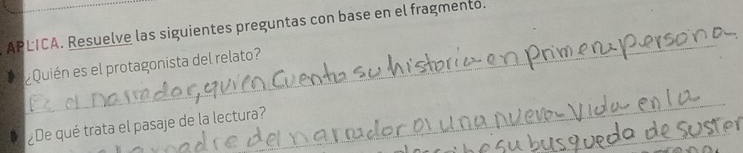 APLICA. Resuelve las siguientes preguntas con base en el fragmento.
¿Quién es el protagonista del relato?
Es el narrador, quien cuenta su historia en primera persona.
¿De qué trata el pasaje de la lectura?
madre del narrador o una nueva vida en la
su busqueda de suster